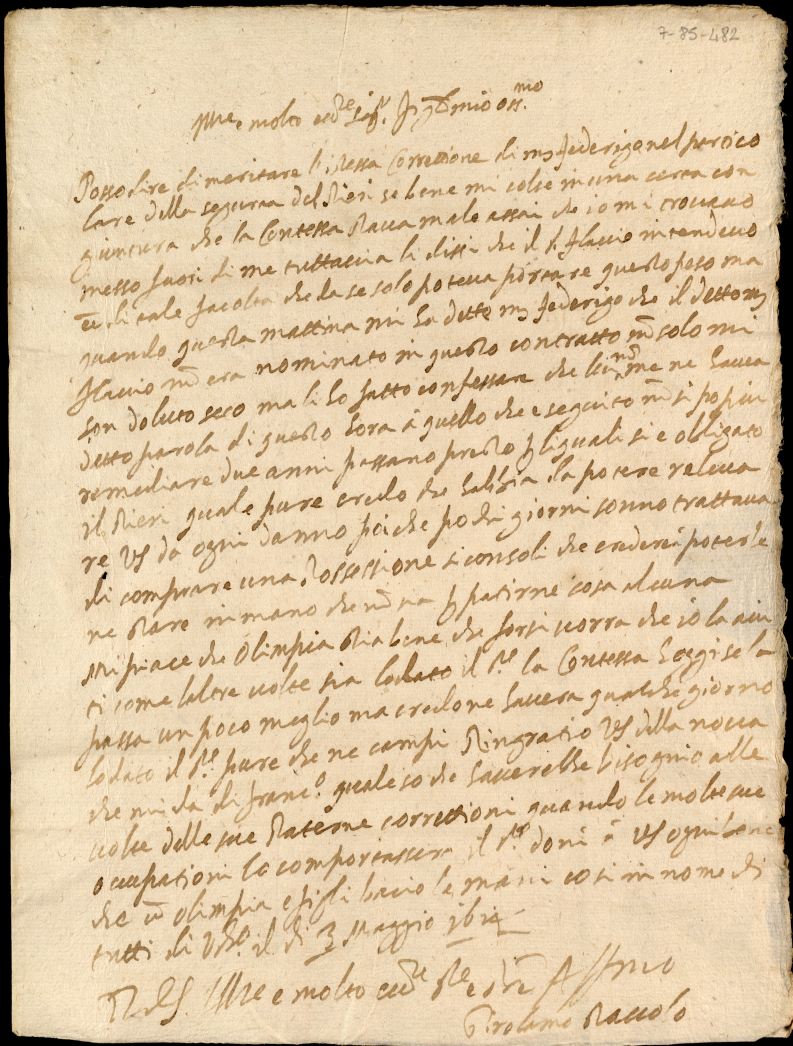 7-85-482
Ill.re e molto ecc.te Sig.r mio oss.mo
Posso dire di meritare l'istessa Correttione di ms Federigo nel partico
lare della segurtà del Rieri se bene mi colse in una certa con
giuntura che la Contessa stava male assai che io mi trovavo
mezzo fuori di me tuttavia li dissi che il s.r Flavio intendevo
di tale facoltà che da se solo poteva portare questo peso ma
quando questa mattina mi ha detto ms Federigo che il detto ms
Flavio nō era nominato in questo contratto nō solo mi
son doluto seco ma li ho fatto confessare che nō me ne haveva
detto parola di questo hora à quello che e seguito nō si po piu
remediare due anni passano presto p li quali si e obligato
il Rieri quale pure credo che habbia da potere releva
re VS da ogni danno poiche pochi giorni sonno trattava
di comprare una Possessione si consoli che crederei poterle
ne stare in mano che nō sia p patirne cosa alcuna
Mi piace che Olimpia stia bene che forsi vorra che io la aiu
ti come laltre volte sia lodato il S.re la Contessa hoggi se la
passa un poco meglio ma credo ne havera qualche giorno
lodato il S.re pure che ne campi Ringratio VS della nova
che mi da di Franc.o quale so che haverebbe bisognio alle
volte delle sue Paterne correttioni quando le molte sue
occupationi lo comportassero il S.re doni à VS ogni bene
che cō Olimpia e figli bacio le mani cosi in nome di
tutti di il di 3 Maggio
Di VS Ill.re e molto ecc.te Aff.mo
Girolamo